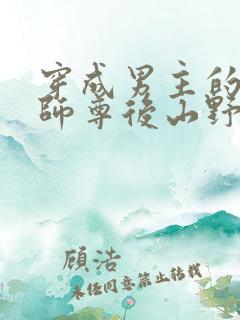 穿成男主的
師尊後山野
顧浩
未經同意禁止轉載